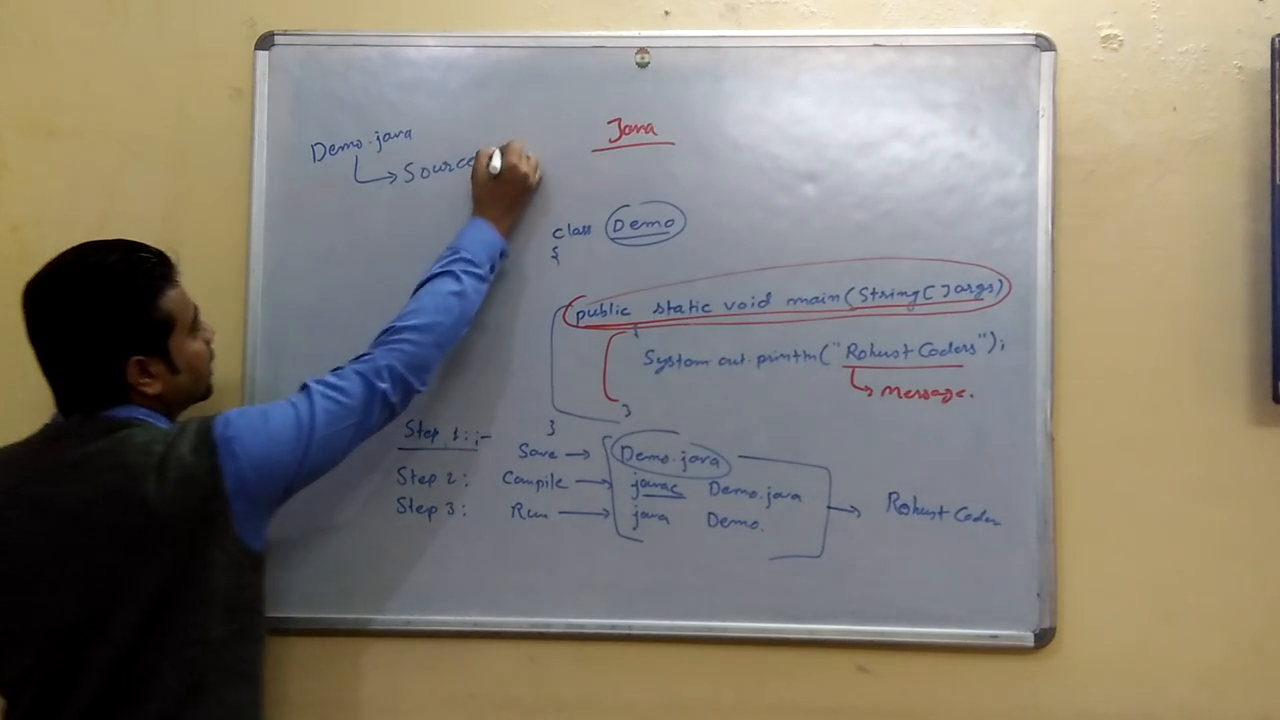 Java
Demo.java
Source
class Demo
{
public static void main(String[] args)
{
System.out.println("Robust Coders");
message.
}
}
Step 1:;-
Save → Demo.java
Step 2: Compile → javac Demo.java
Step 3: Run → java Demo.
→ Robust Coder